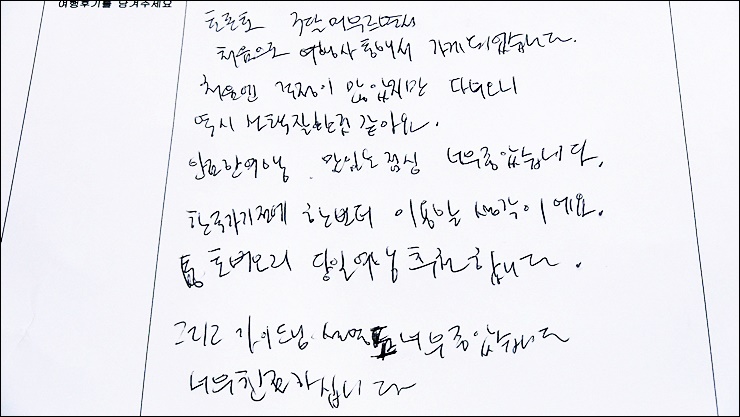 여행후기를 남겨주세요
토론토 두달 머무르면서
처음으로 여행사 통해서 가게 되었습니다.
처음엔 걱정이 많았지만 다녀오니
역시 선택 잘한것 같아요.
맛있는 점심 너무 좋았습니다.
한국가기전에 한번더 이용할 생각이에요.
토버모리 당일여행 추천합니다.
그리고 가이드님 설명도 너무 좋았습니다
너무 친절하십니다